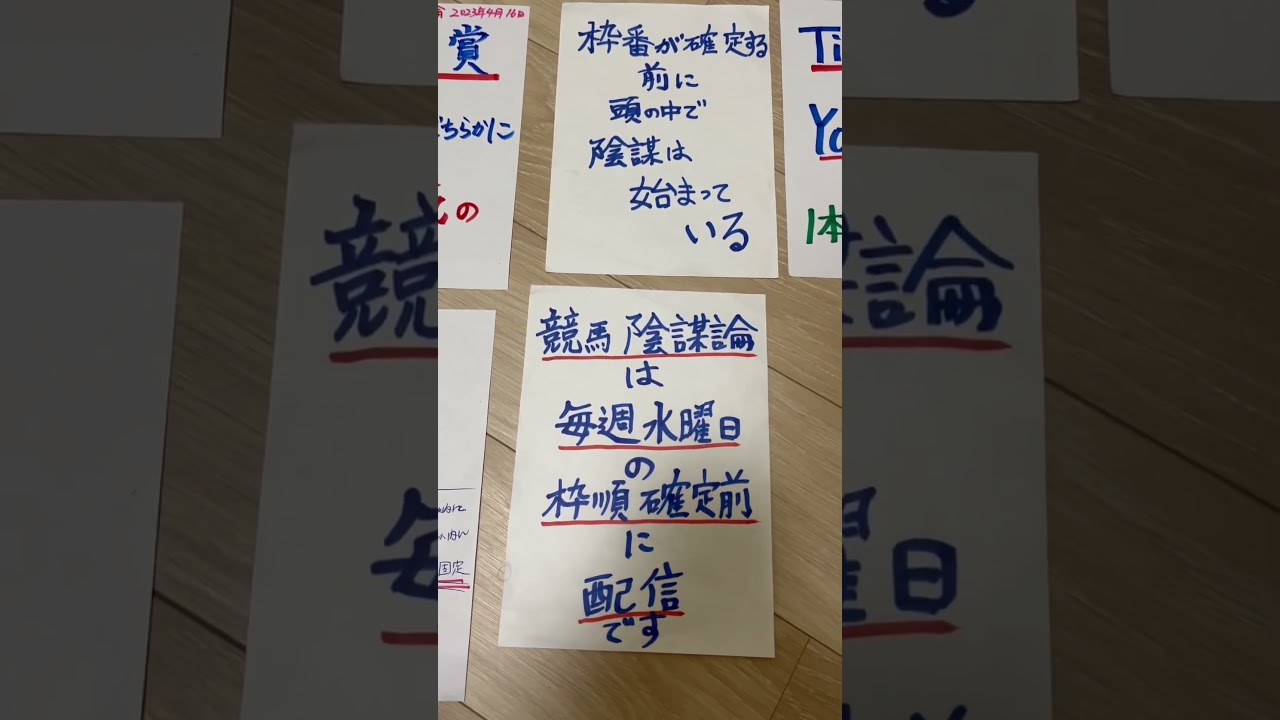 2023年4月16日
賞
どちらかに
の
枠番が確定する
前に
頭の中で
陰謀は
始まって
いる
Ti
Yo
1本
競馬陰謀論
は
毎週水曜日
の
枠順確定前
に
配信
です
固定